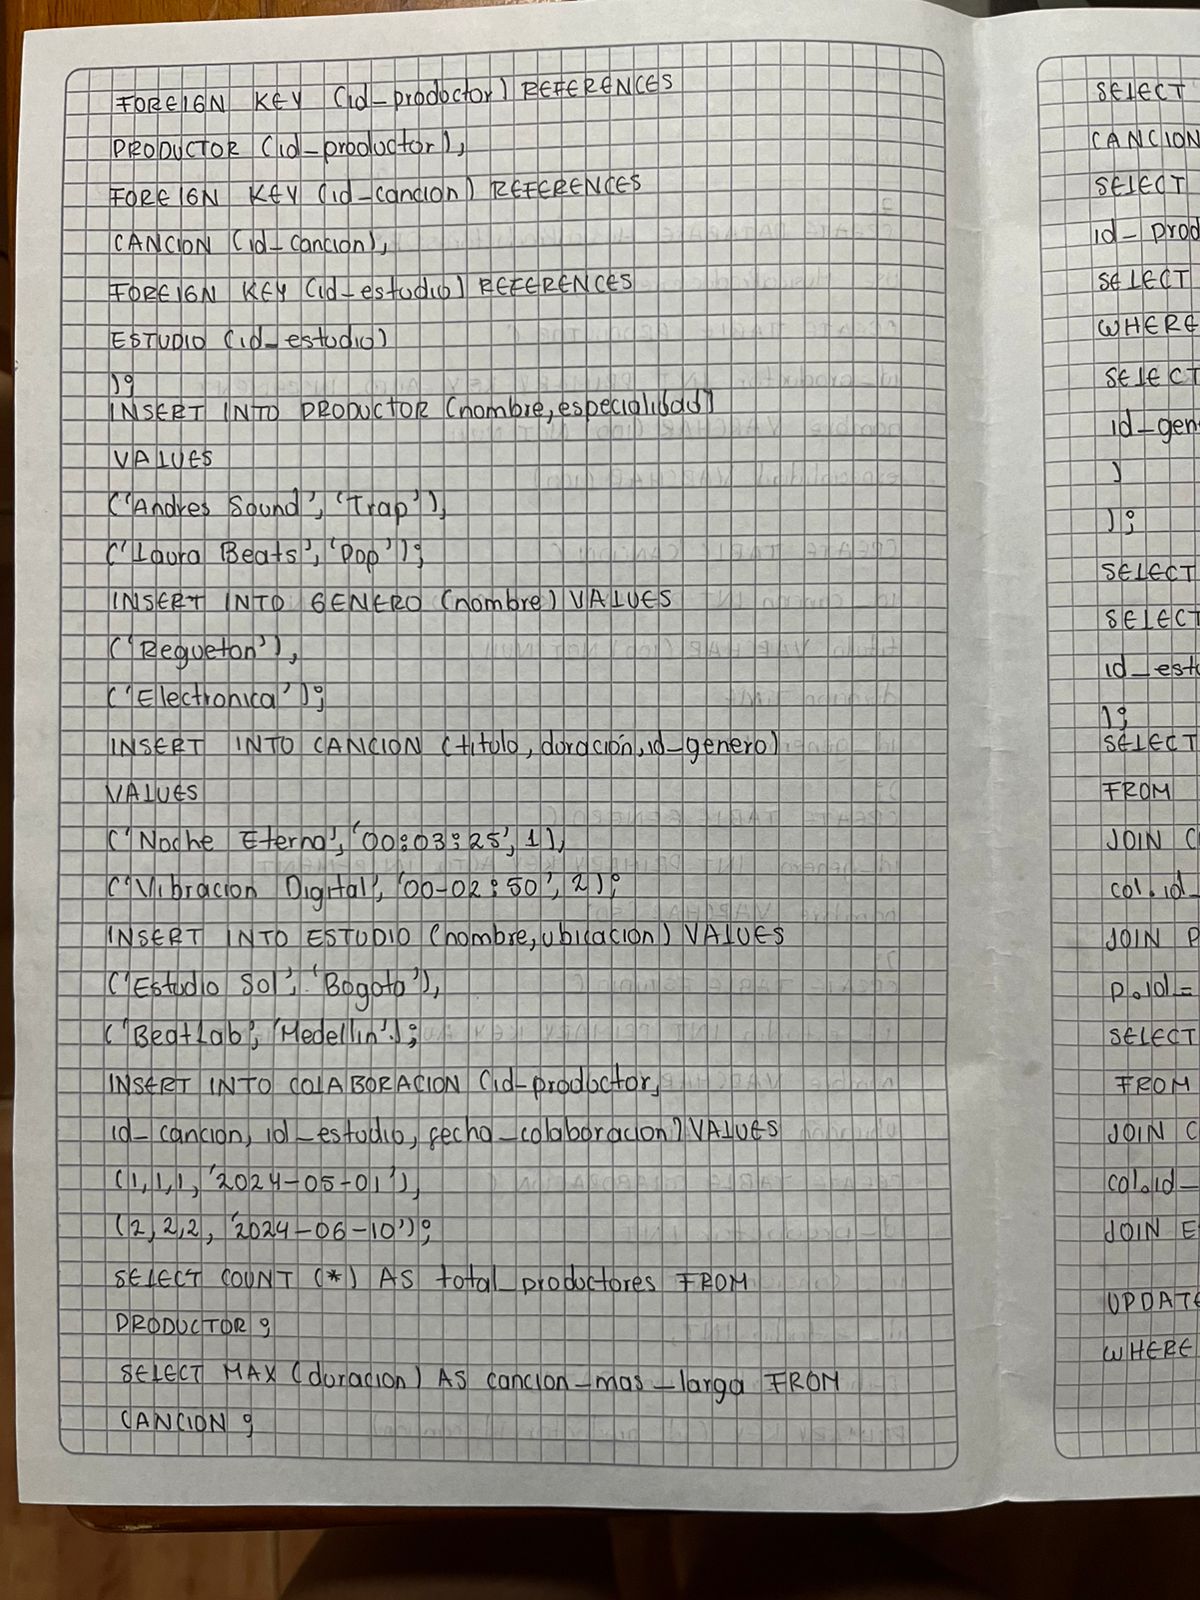 FOREIGN KEY (id-productor) REFERENCES
PRODUCTOR (id-productor),
FOREIGN KEY (id-cancion) REFERENCES
CANCION (id-cancion),
FOREIGN KEY (id-estudio) REFERENCES
ESTUDIO (id-estudio)
);
INSERT INTO PRODUCTOR (nombre, especialidad)
VALUES
('Andres Sound', 'Trap'),
('Laura Beats', 'Pop');
INSERT INTO GENERO (nombre) VALUES
('Regueton'),
('Electronica');
INSERT INTO CANCION (titulo, duración, id-genero)
VALUES
('Noche Eterna', '00:03:25', 1),
('Vibracion Digital', '00-02:50', 2);
INSERT INTO ESTUDIO (nombre, ubicacion) VALUES
('Estudio Sol', 'Bogota'),
('BeatLab', 'Medellin');
INSERT INTO COLABORACION (id-productor,
id-cancion, id-estudio, fecha-colaboracion) VALUES
(1,1,1, '2024-05-01'),
(2,2,2, '2024-06-10');
SELECT COUNT (*) AS total_productores FROM
PRODUCTOR;
SELECT MAX (duracion) AS cancion-mas-larga FROM
CANCION;
SELECT
CANCION
SELECT
id-prod
SELECT
WHERE
SELECT
id-gen
)
);
SELECT
SELECT
id-est
);
SELECT
FROM
JOIN C
col.id-
JOIN P
P.id=
SELECT
FROM
JOIN C
col.id-
JOIN E
UPDATE
WHERE